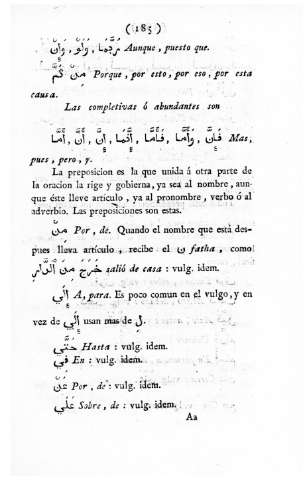 ( 185 )
رُبَّمَا , وَلَوْ , وَإِنْ Aunque, puesto que.
مِنْ ثَمَّ Porque, por esto, por eso, por esta
causa.
Las completivas ó abundantes son
فَإِنَّ , وَأَمَّا , فَأَمَّا , إِنَّمَا , إِنَّ , أَنَّ , أَمَّا Mas,
pues, pero, y.
La preposicion es la que unida á otra parte de
la oracion la rige y gobierna, ya sea al nombre, aun-
que éste lleve artículo, ya al pronombre, verbo ó al
adverbio. Las preposiciones son estas.
مِنْ Por, de. Quando el nombre que está des-
pues lleva artículo, recibe el ن fatha, como
خَرَجَ مِنَ الدَّارِ salió de casa: vulg. idem.
إِلَي A, para. Es poco comun en el vulgo, y en
vez de إِلَي usan mas de لِ
حَتَّي Hasta: vulg. idem.
فِي En: vulg. idem.
عَنْ Por, de: vulg. idem.
عَلَي Sobre, de: vulg. idem.
Aa